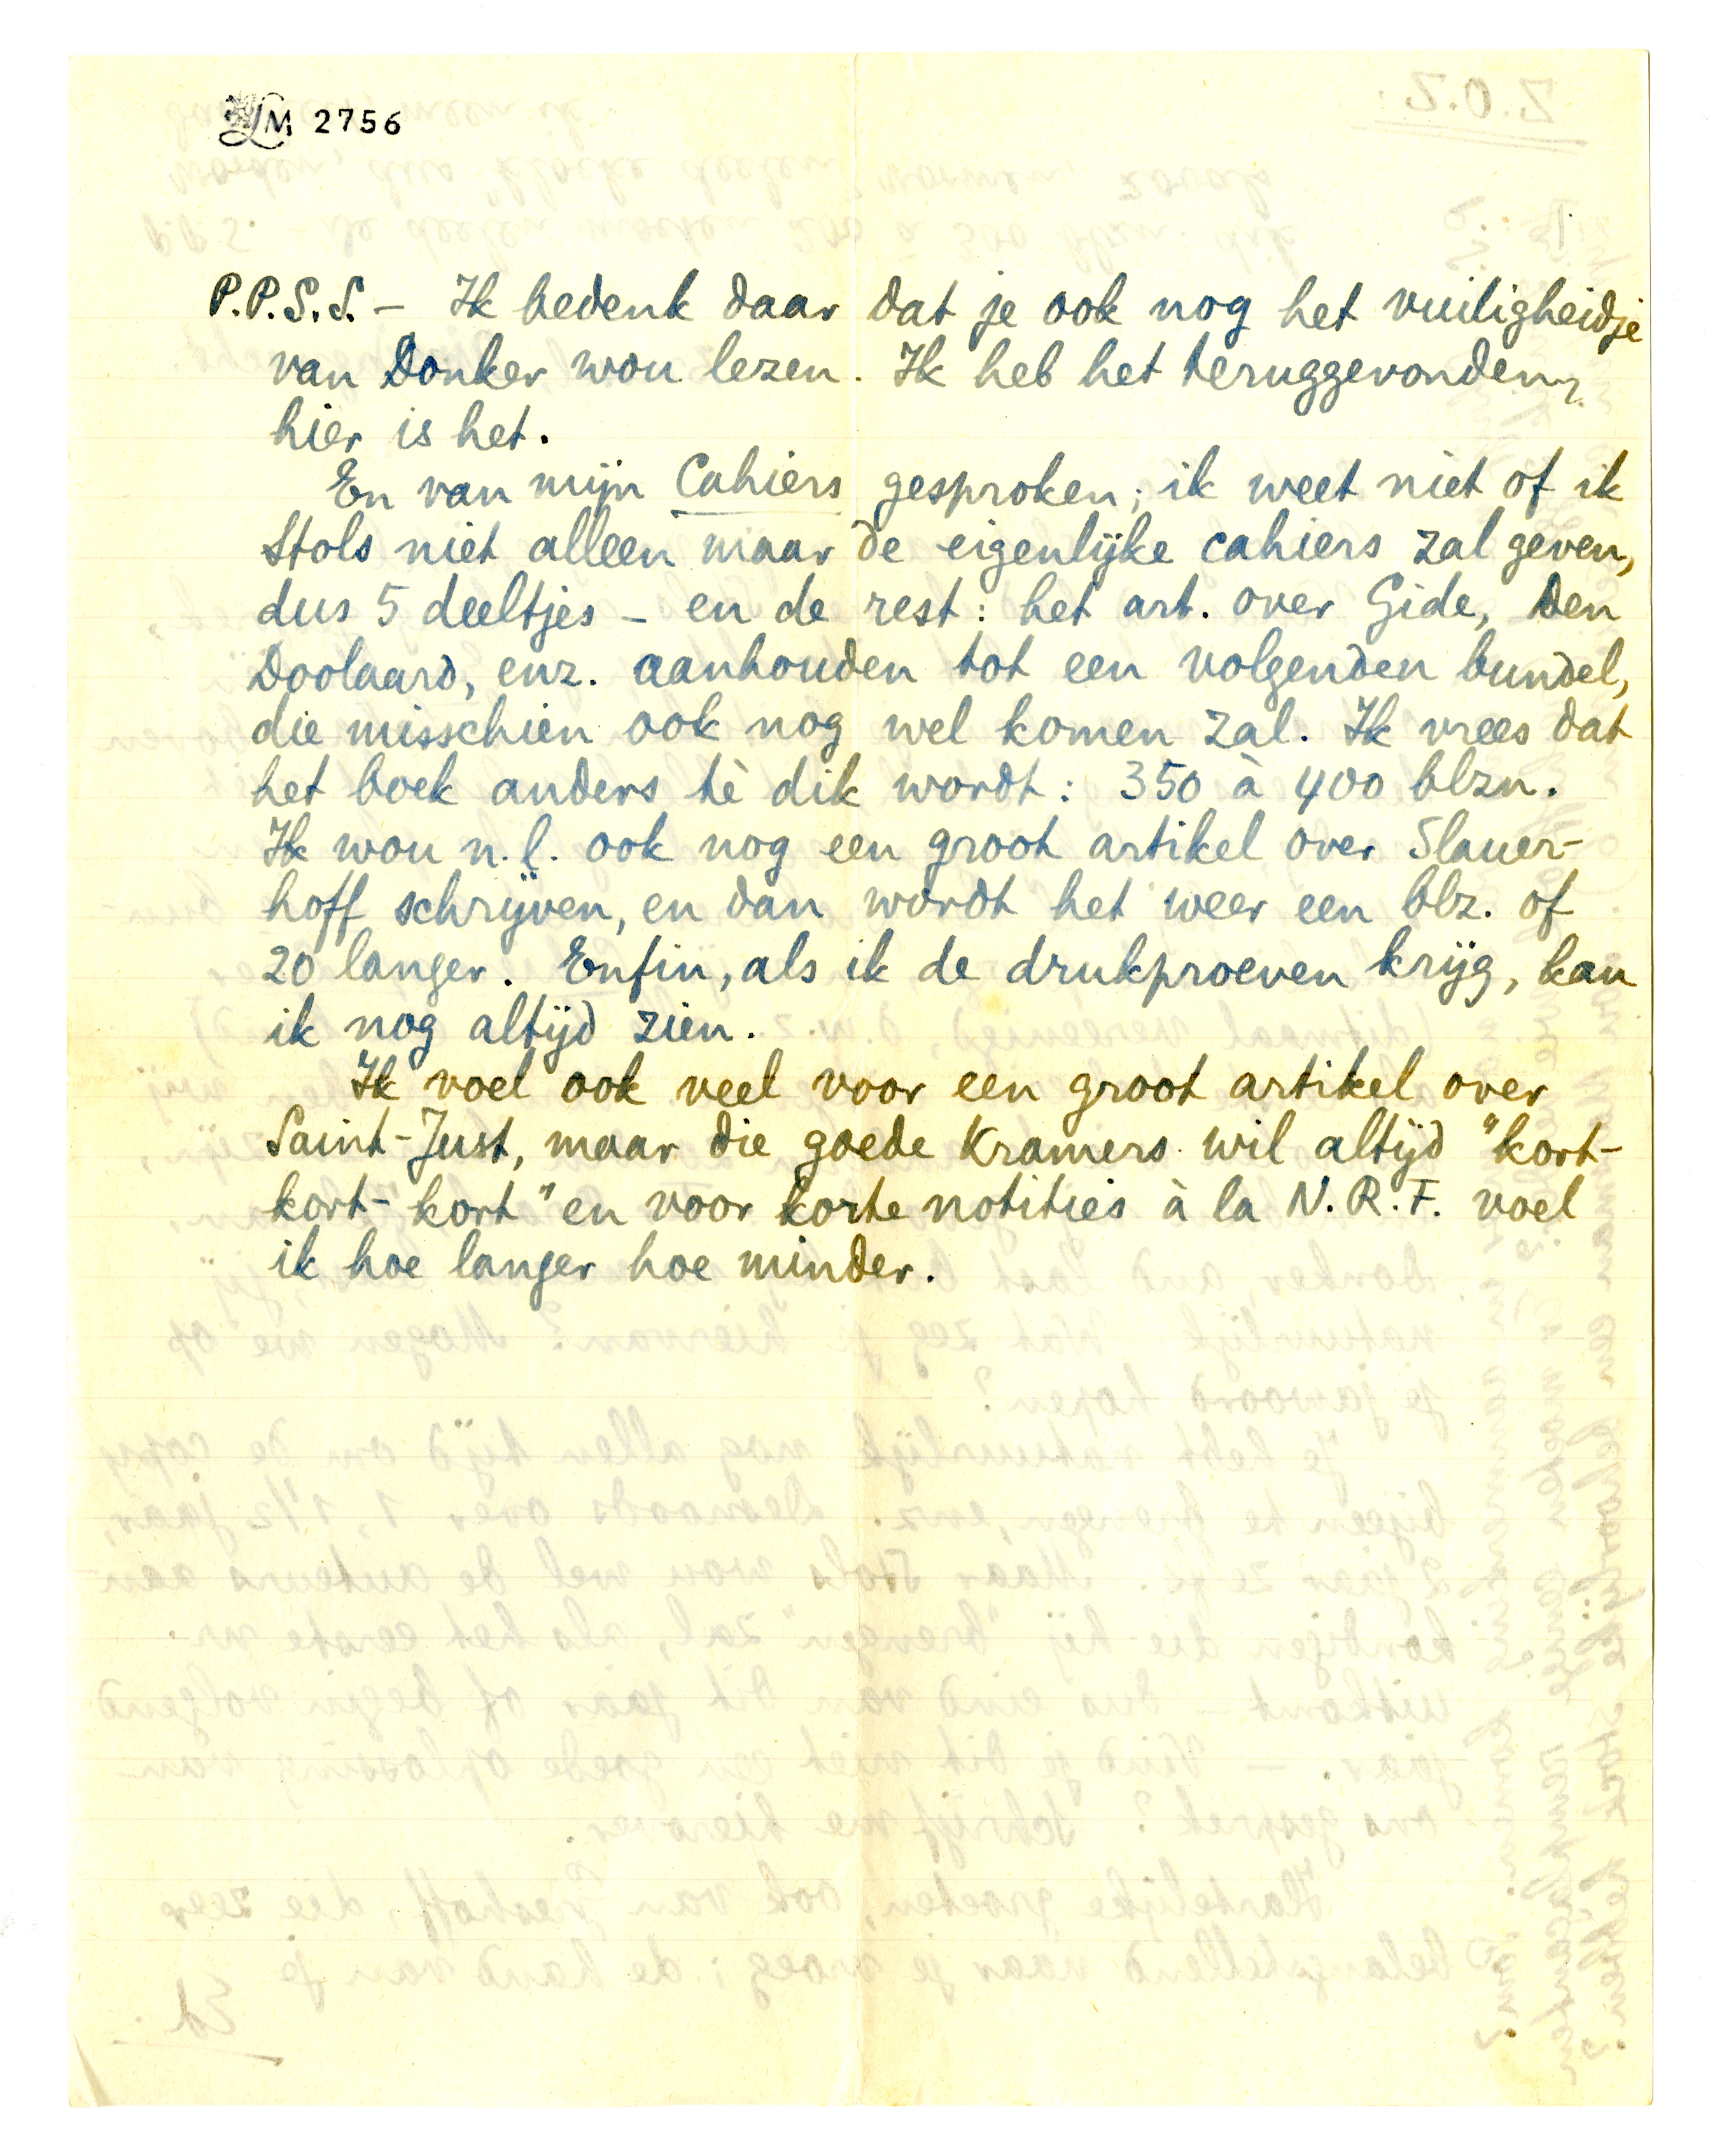 LM 2756
P.P.S.S. – Ik bedenk daar dat je ook nog het vuiligheidje
van Donker wou lezen. Ik heb het teruggevonden,
hier is het.
En van mijn Cahiers gesproken; ik weet niet of ik
Stols niet alleen maar de eigenlijke cahiers zal geven,
dus 5 deeltjes – en de rest: het art. over Gide, Den
Doolaard, enz. aanhouden tot een volgenden bundel,
die misschien ook nog wel komen zal. Ik vrees dat
het boek anders tè dik wordt: 350 à 400 blzn.
Ik wou n.l. ook nog een groot artikel over Slauer-
hoff schrijven, en dan wordt het weer een blz. of
20 langer. Enfin, als ik de drukproeven krijg, kan
ik nog altijd zien.
Ik voel ook veel voor een groot artikel over
Saint-Just, maar die goede Kramers wil altijd "kort-
kort-kort" en voor korte notities à la N.R.F. voel
ik hoe langer hoe minder.